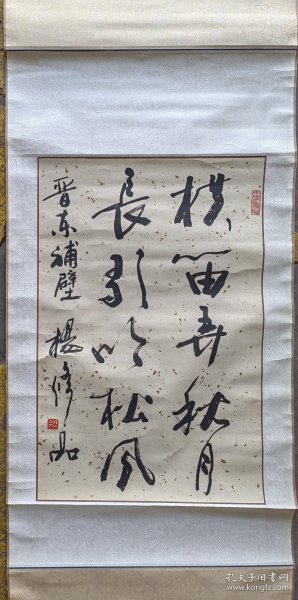 横笛弄秋月
長引吟松风
晋东補壁 楊修品
孔夫子旧书网